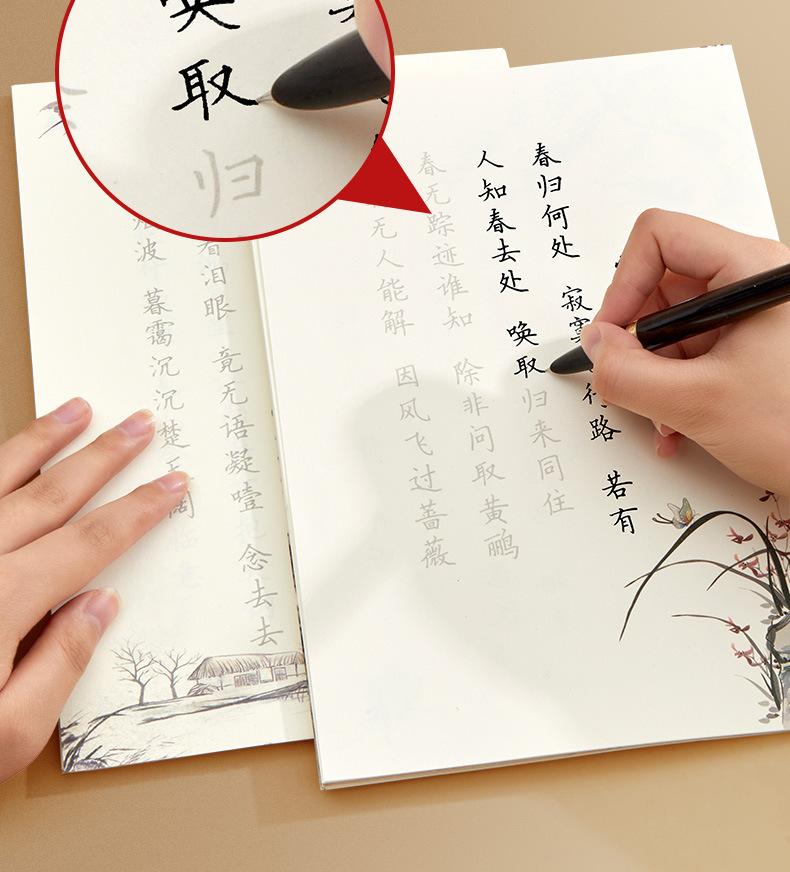 唤
取
归
春归何处 寂寞 行路 若有
人知春去处 唤取归来同住
春无踪迹谁知 除非问取黄鹂
无人能解 因风飞过蔷薇
看泪眼 竟无语凝噎 念去去
烟波 暮霭沉沉楚天阔